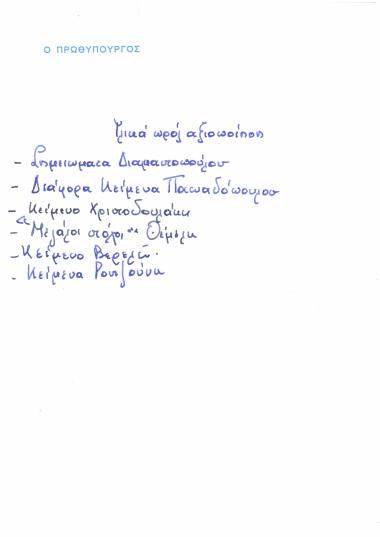 Ο ΠΡΩΘΥΠΟΥΡΓΟΣ
Υλικά πρός αξιοποίηση
- Σημειώματα Διαμαντοπούλου
- Διάφορα Κείμενα Παπαδόπουλου
- Κείμενο Χριστοδουλάκη
- "Μεγάλοι στόχοι" Θέμελη
- Κείμενο Βερελή.
- Κείμενα